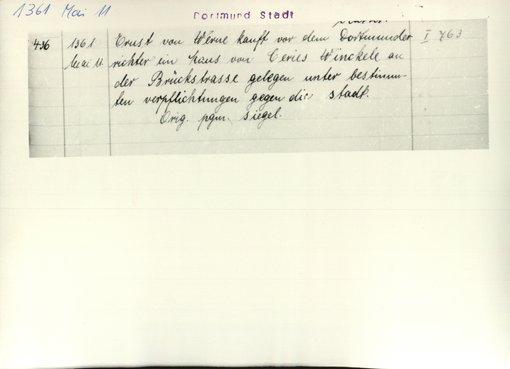 1361 Mai 11
Dortmund Stadt
436 1361 Ernst von Werne kauft vor dem Dortmunder I 763
Mai 11. richter ein Haus von Winckele an
der Brückstrasse gelegen unter bestimm-
ten verpflichtungen gegen die stadt.
Orig. pgm. Siegel.